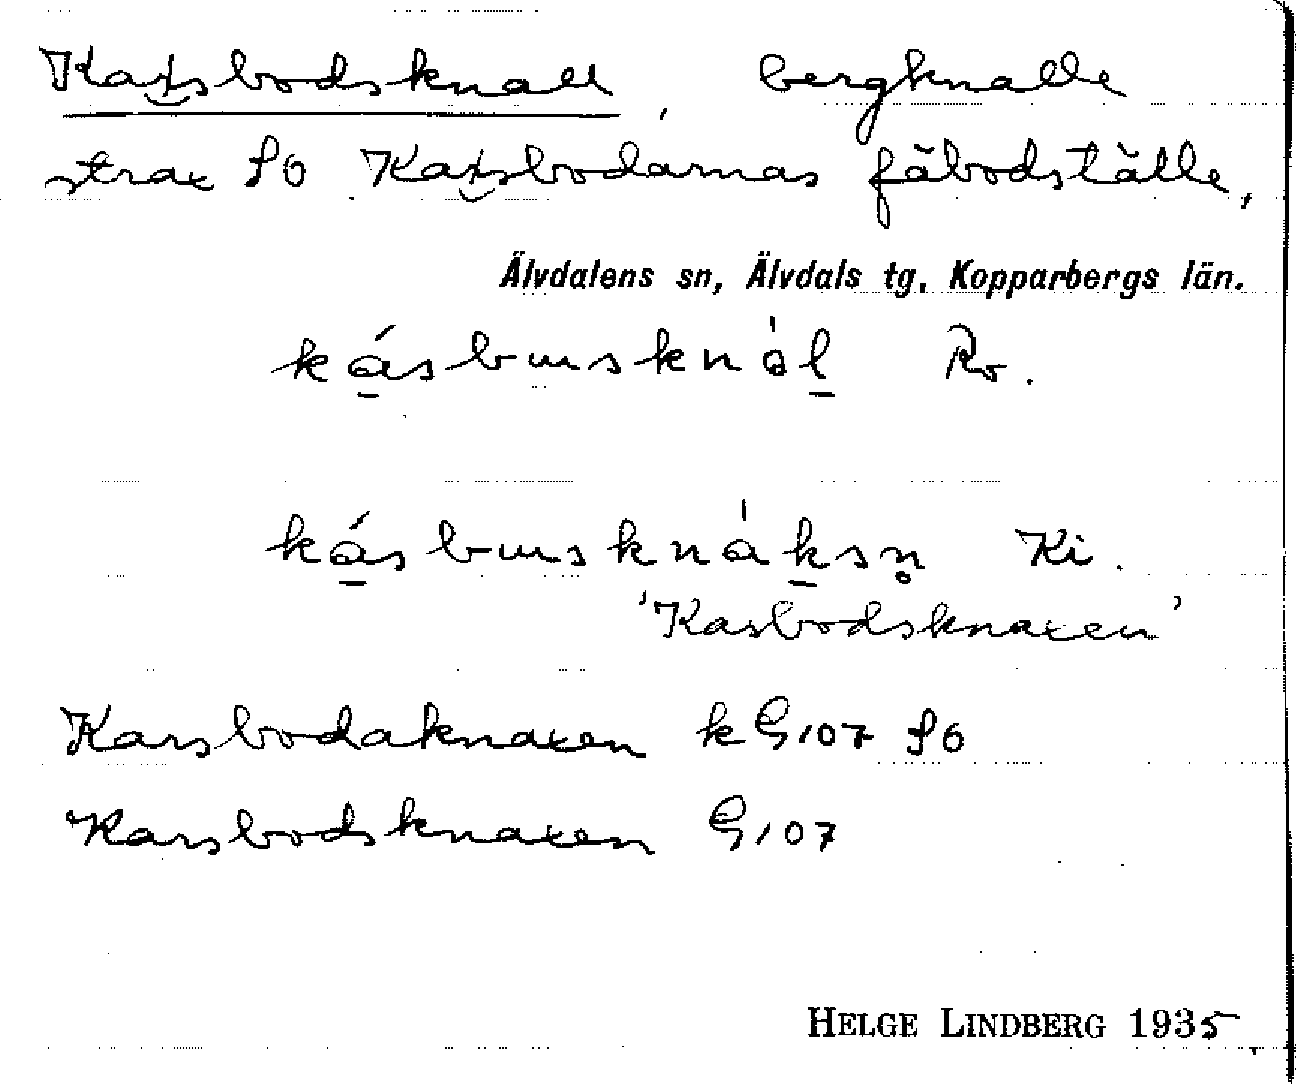 Katsbodsknall, bergknalle
strax SO Katsbodarnas fäbodställe,
Älvdalens sn, Älvdals tg, Kopparbergs län.
ká̱sbɯsknàḻ Ro.
ká̱sbɯsknàḵsn̥ Ki.
'Kasbodsknaxen'
Karsbodaknaxen kG107 SO
Karsbodsknaxen G107
HELGE LINDBERG 1935